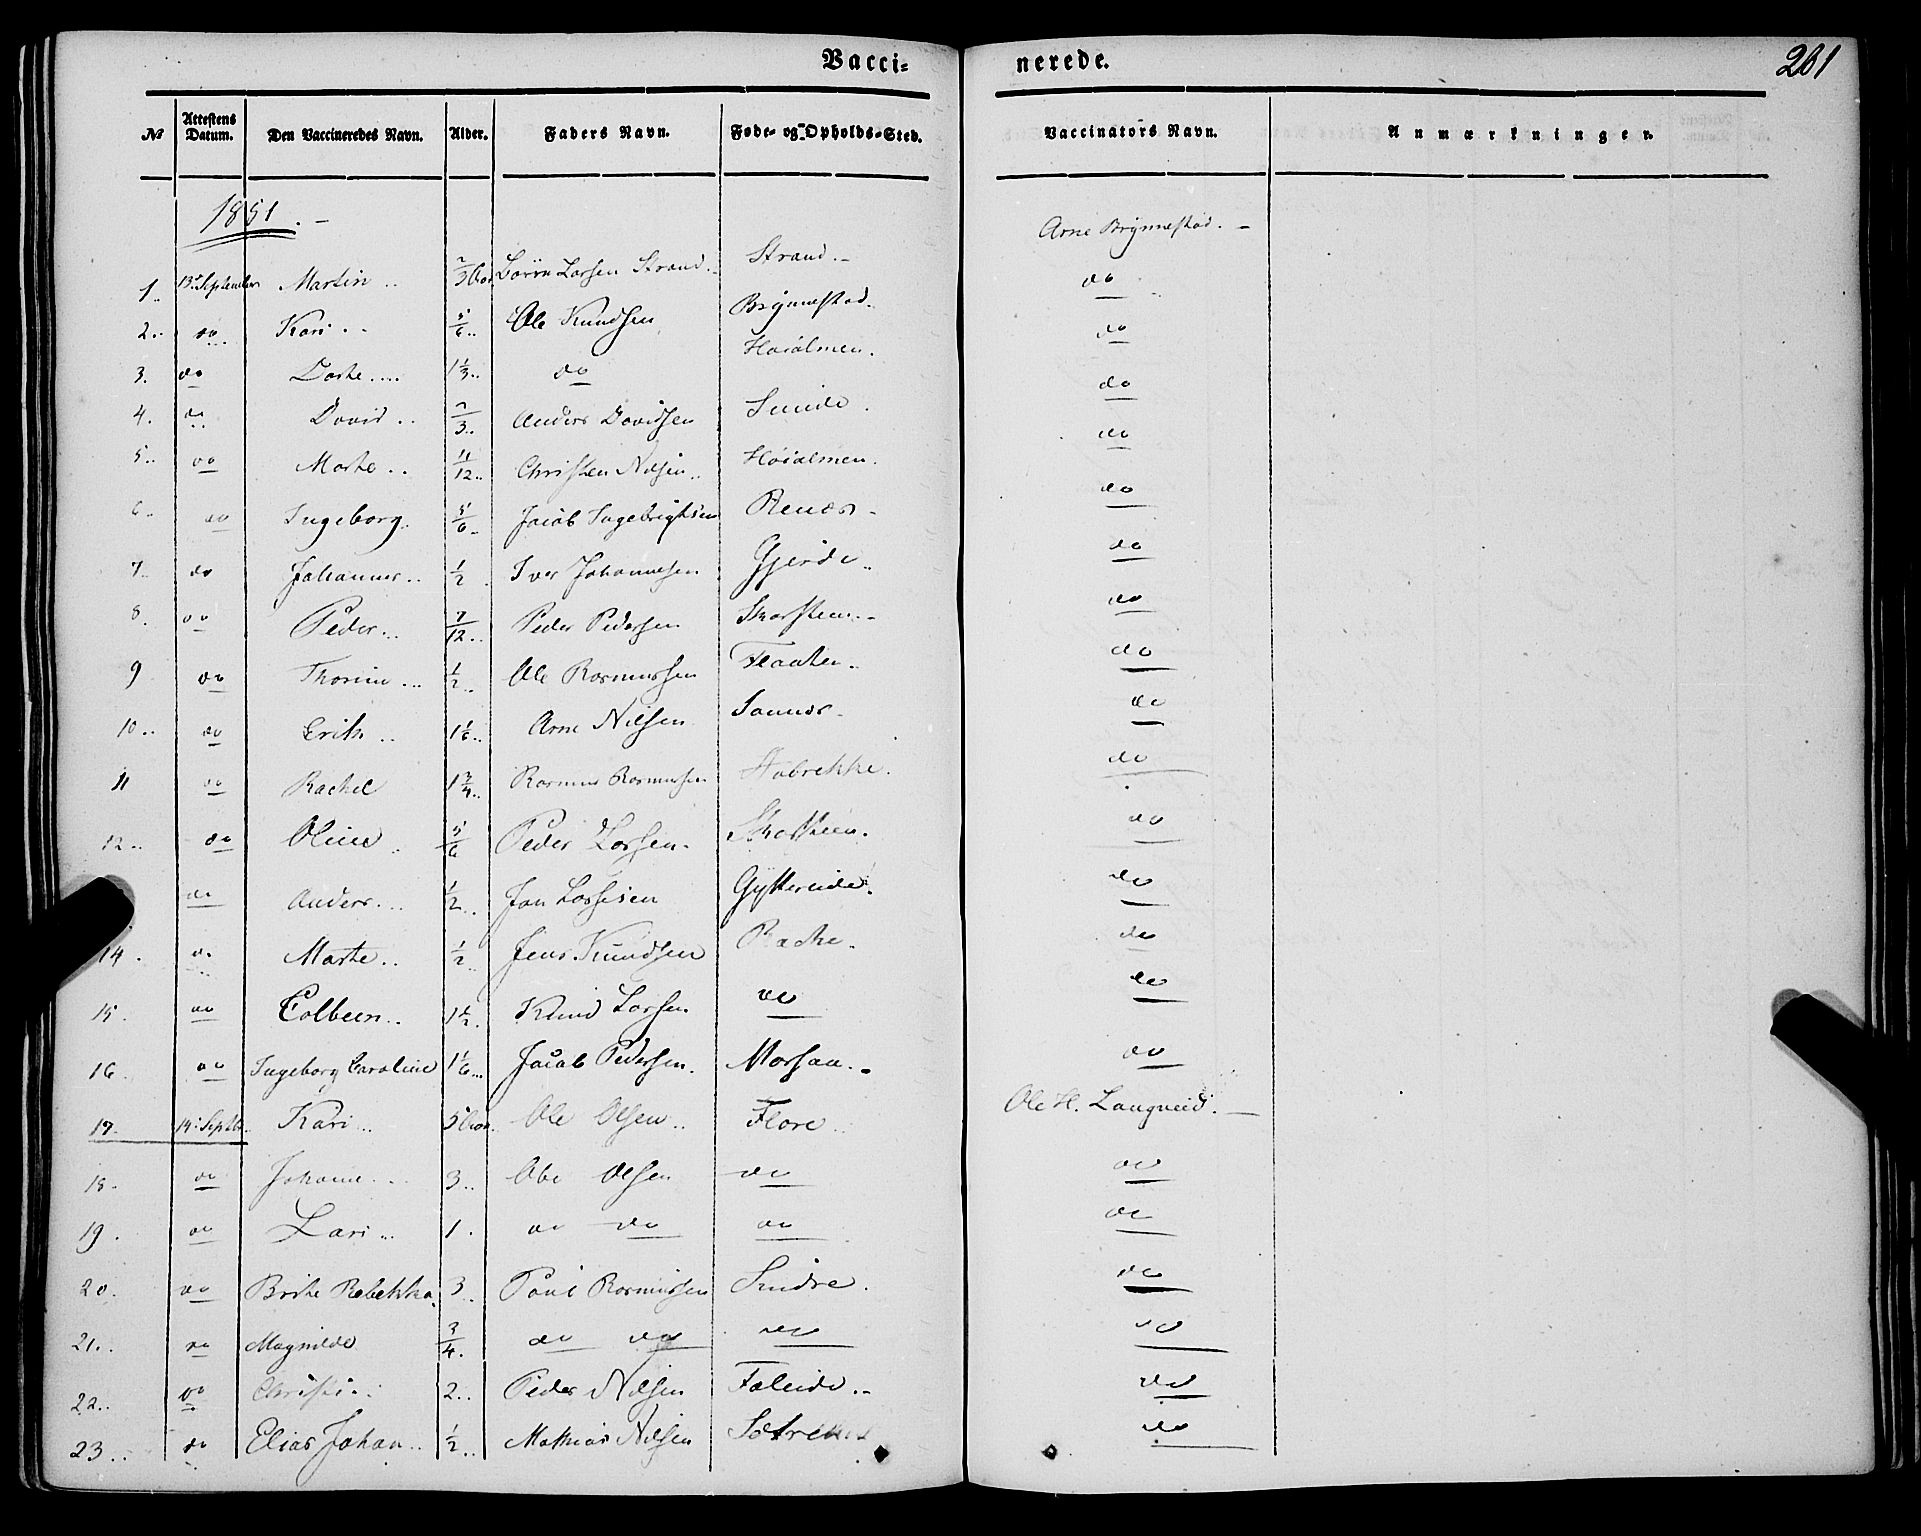 Vacci- nerede. 261
№ Attestens Datum. Den Vaccineredes Navn. Alder. Faders Navn. Føde- og Opholds-Sted. Vaccinators Navn. Anmærkninger.
1851. Arne Brynnestad.
1. 13 September Martin 2/3 Larsen Strand. Strand. do
2. do Kari 5/6 Ole Knudsen Brynnestad. do
3. do Dorte 1 1/3 do Høialmen. do
4. do David 2/3 Anders Davidsen Sunde. do
5. do Marte 11/12 Christen Nilsen Høialmen. do
6. do Ingeborg 5/6 Jacob Ingebrigtsen do
7. do Johannes 1/2 Iver Johannesen Gjerde do
8. do Peder 7/12 Peder Pedersen Skarsteen do
9 do Thorine 1/2 Ole Rasmussen Flaaten do
10. do Erik 1 1/6 Arne Nilsen do
11 do Rachel 1 3/4 Rasmus Rasmussen do
12. do Oline 5/6 Peder Larsen. Skarsteen. do
do Anders 1/2 Jon do
14. do Marte 1/2 Jens Knudsen do
15. do Colbeen 1 1/2 Knud Larsen do do
16. do Ingeborg Caroline 1 1/6 Jacob Pedersen. do
17. 14 Septbr Kari 5 Ole Olsen Flore Ole H. Langneid.
18. do Johanne 3 Ole Olsen do do
19. do Lari 1. do do do do
20. do Brithe Rebekka 3 Paul Rasmussen Sindre. do
21. do Magnilde 3/4 do do do do
22. do Christi 2 Peder Nilsen Faleide do
23. do Elias Johan 1/2 Mathias Nilsen do